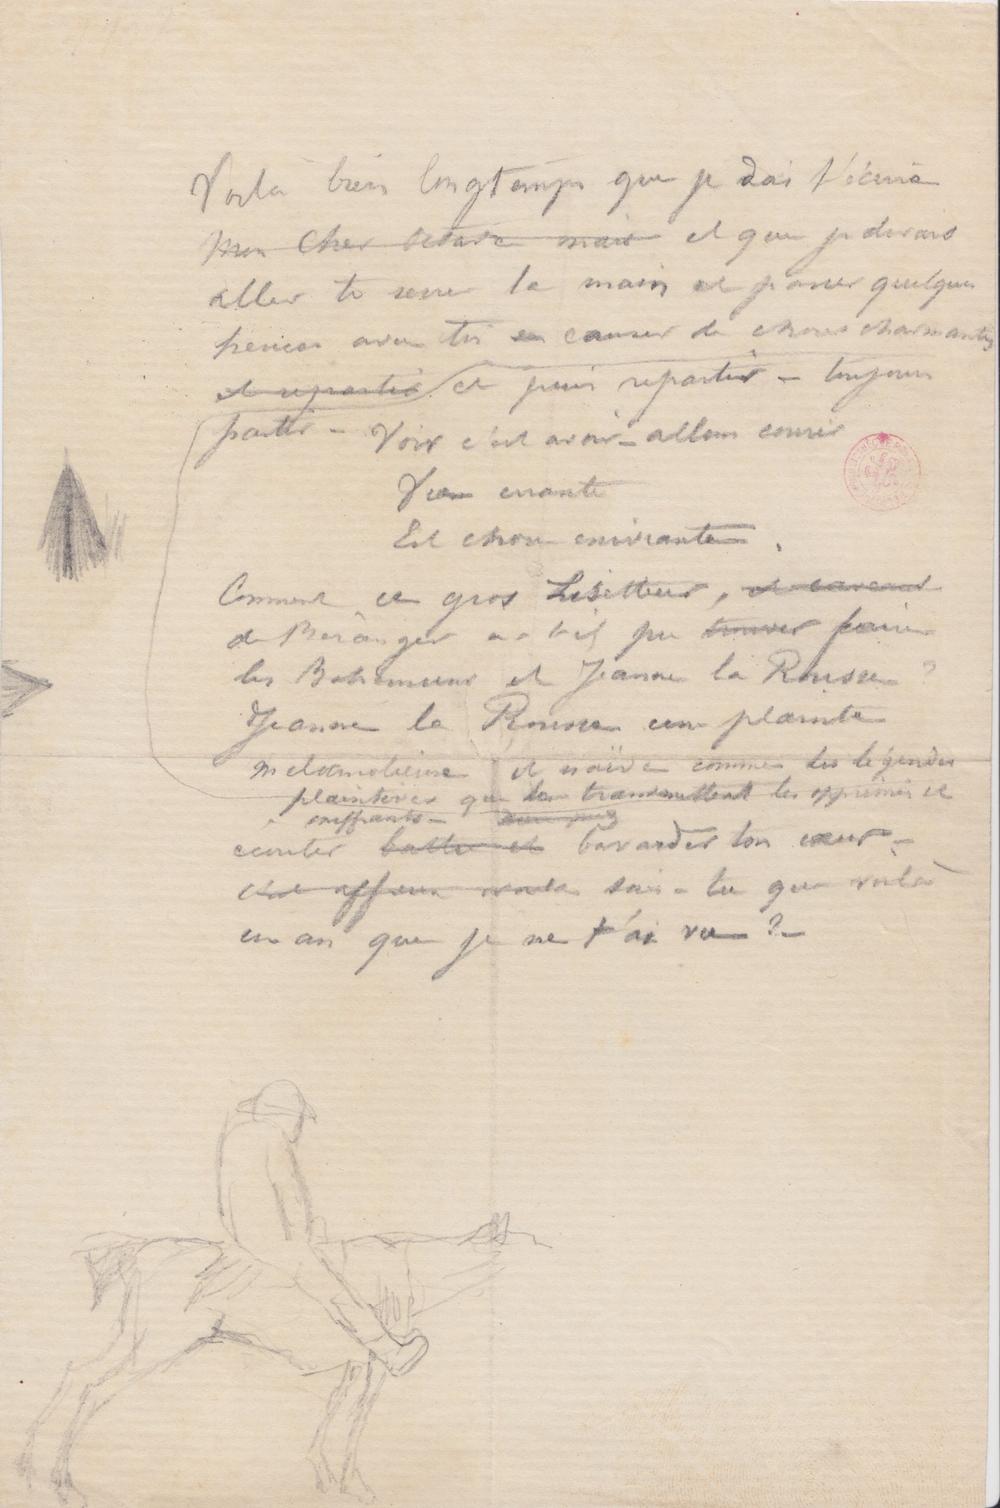 Voilà bien longtemps que je dois t'écrire
Mon Cher mais et que je devrais
aller te serrer la main et passer quelques
avec toi en causer de choses charmantes
et repartir et puis repartir - toujours
partir - Voir c'est avoir - allons courir
Vie errante
Est chose enivrante.
Comment ce gros Lisetteur, et
de Béranger a-t-il pu trouver faire
les Bohémiens et Jeanne la Rousse ?
Jeanne la Rousse une plainte
et naïve comme les légendes
plaintives que transmettent les opprimés et
souffrants -
écouter battre et bavarder ton cœur -
c'est affreux sais-tu que voilà
un an que je ne t'ai vu ? -